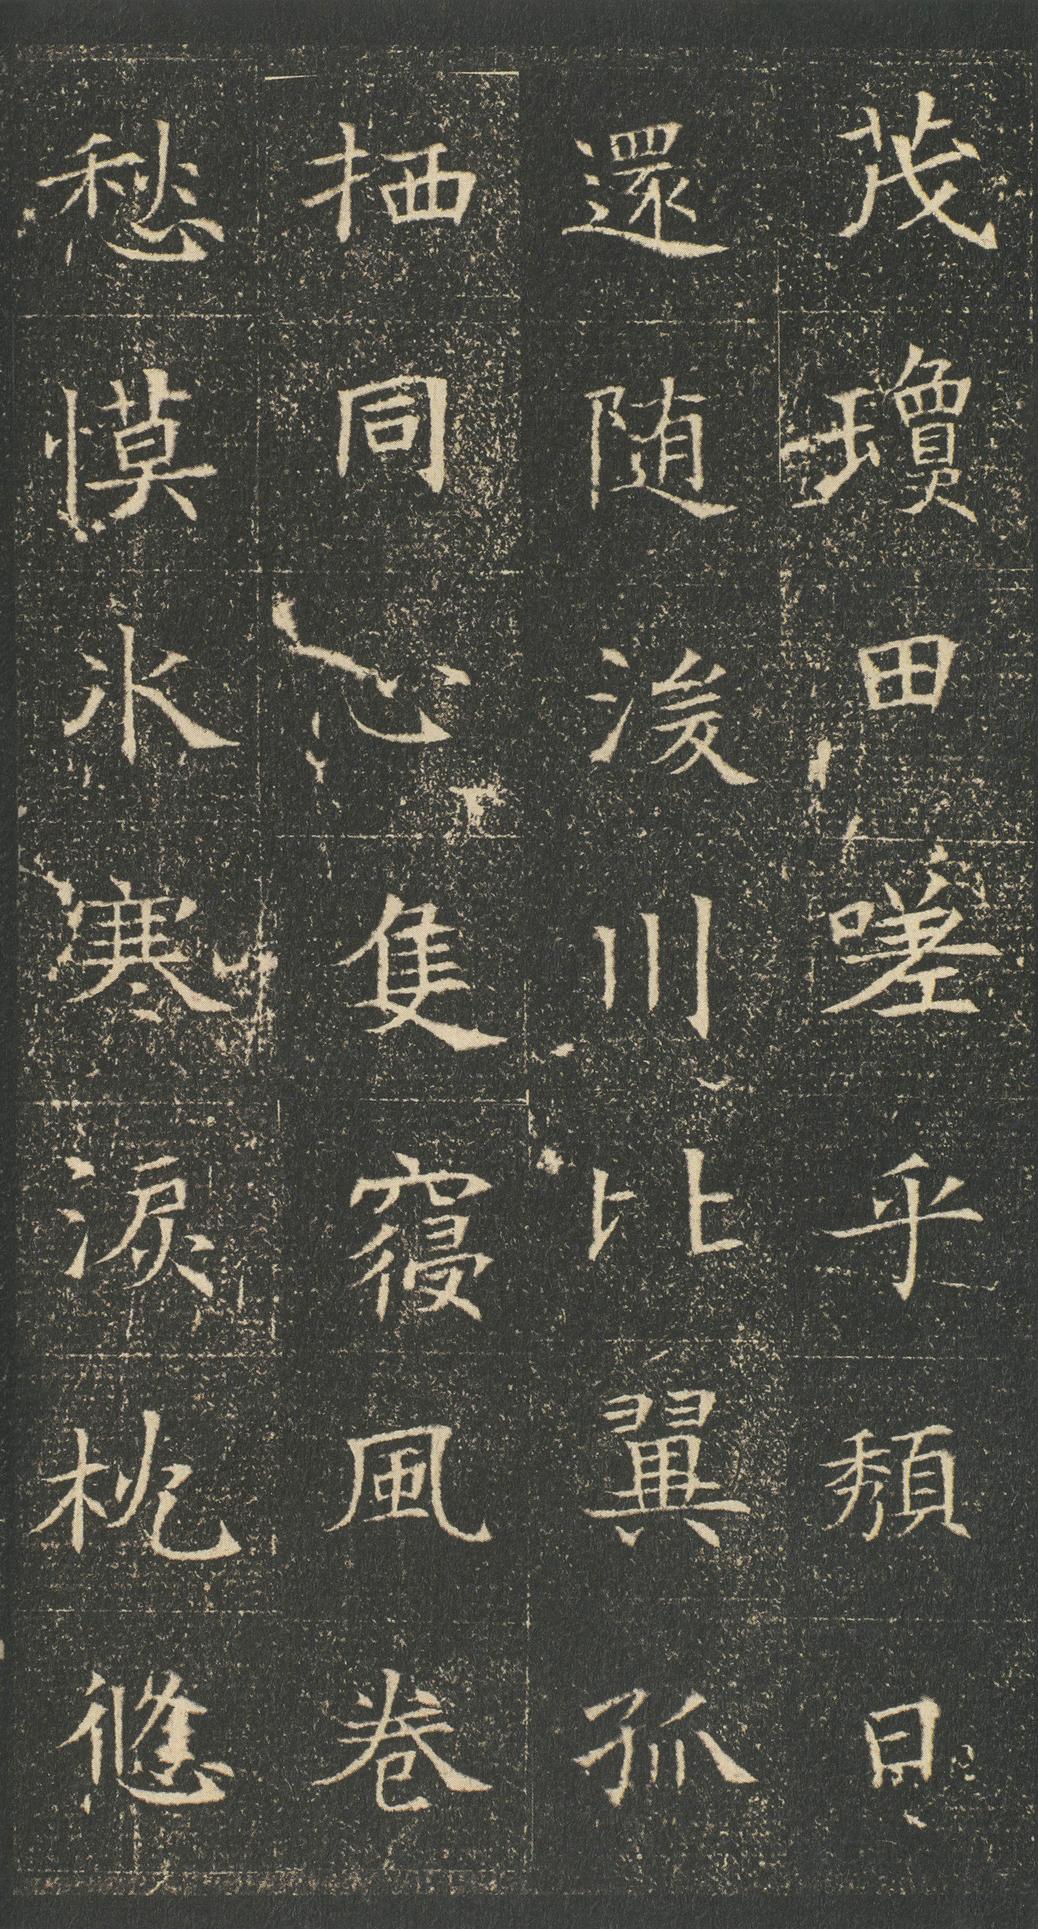 茂瓊田嗟乎頹日
還随浚川比翼孤
栖同心隻寑風卷
愁慔氷寒淚枕悠